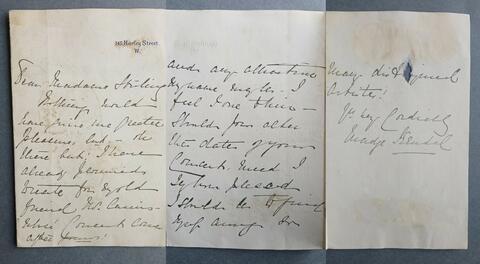 145 Harley Street.
W.
Dear Madame Stirling
Nothing would
have given me greater
pleasure but – oh
these buts! I have
already promised
to recite for my old
friend, Mr.
whose Concert comes
after yours!
and any
my name
feel I
Should you alter
the date of your
Concert need I
say how pleased
I should be to find
myself among so
many distinguished
artists!
Yrs very Cordially
Madge Kendal